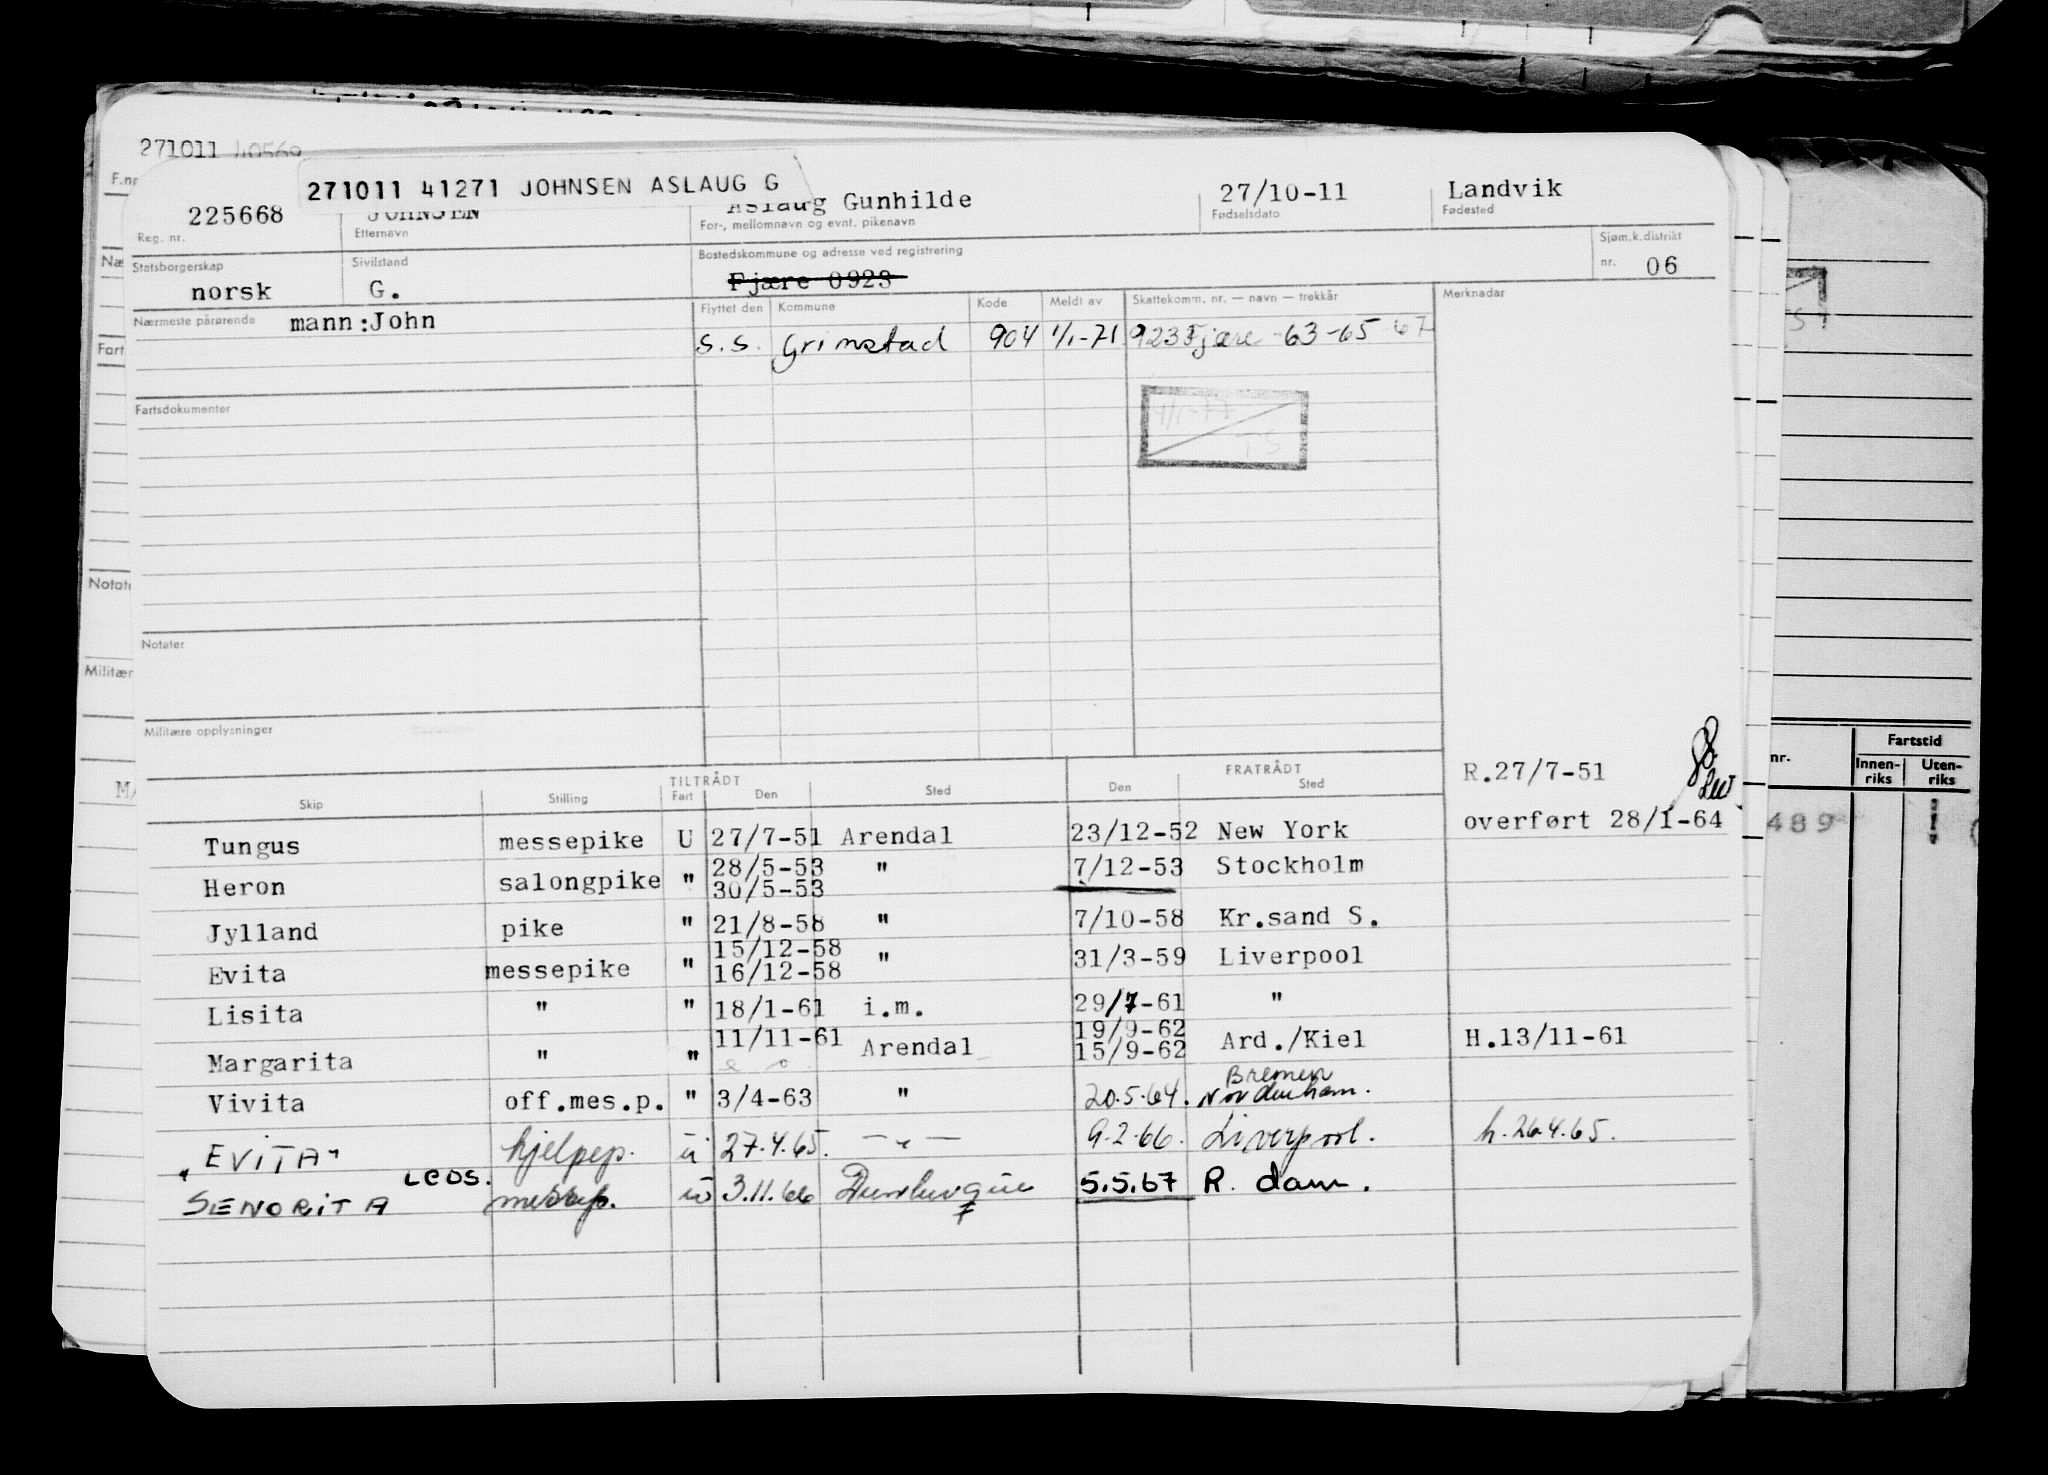 271011 40569
F.nr
271011 41271 JOHNSEN ASLAUG G
225668 JOHNSEN Aslaug Gunhilde 27/10-11 Landvik
Reg. nr. Etternavn For-, mellomnavn og evnt. pikenavn Fødselsdato Fødested
Statsborgerskap Sivilstand Bostedskommune og adresse ved registrering Sjøm.k.distrikt
norsk G. Fjære 0923 nr. 06
Nærmeste pårørende mann:John Flyttet den Kommune Kode Meldt av Skattekomm. nr. — navn — trekkår Merknadar
s.s. Grimstad 904 1/1-71 923 Fjære -63-65-67
Fartsdokumenter
4/1-77
TS
Notater
Militære opplysninger
TILTRÅDT FRATRÅDT
Skip Stilling Fart Den Sted Den Sted
R.27/7-51
Tungus messepike U 27/7-51 Arendal 23/12-52 New York overført 28/1-64
28/5-53
Heron salongpike " 30/5-53 " 7/12-53 Stockholm
Jylland pike " 21/8-58 " 7/10-58 Kr.sand S.
15/12-58
Evita messepike " 16/12-58 " 31/3-59 Liverpool
Lisita " " 18/1-61 i.m. 29/7-61 "
11/11-61 19/9-62
Margarita " " Arendal 15/9-62 Ard./Kiel H.13/11-61
Bremen
Vivita off.mes.p. " 3/4-63 " 20.5.64. Nordenham.
"EVITA" hjelpep. u 27.4.65. —"— 9.2.66. Liverpool. h.26.4.65.
LEOS.
SENORITA messep. u 3.11.66 Dunkerque 5.5.67 R.dam.
Notate
Militær
nr. Fartstid
Innen-riks Uten-riks
489